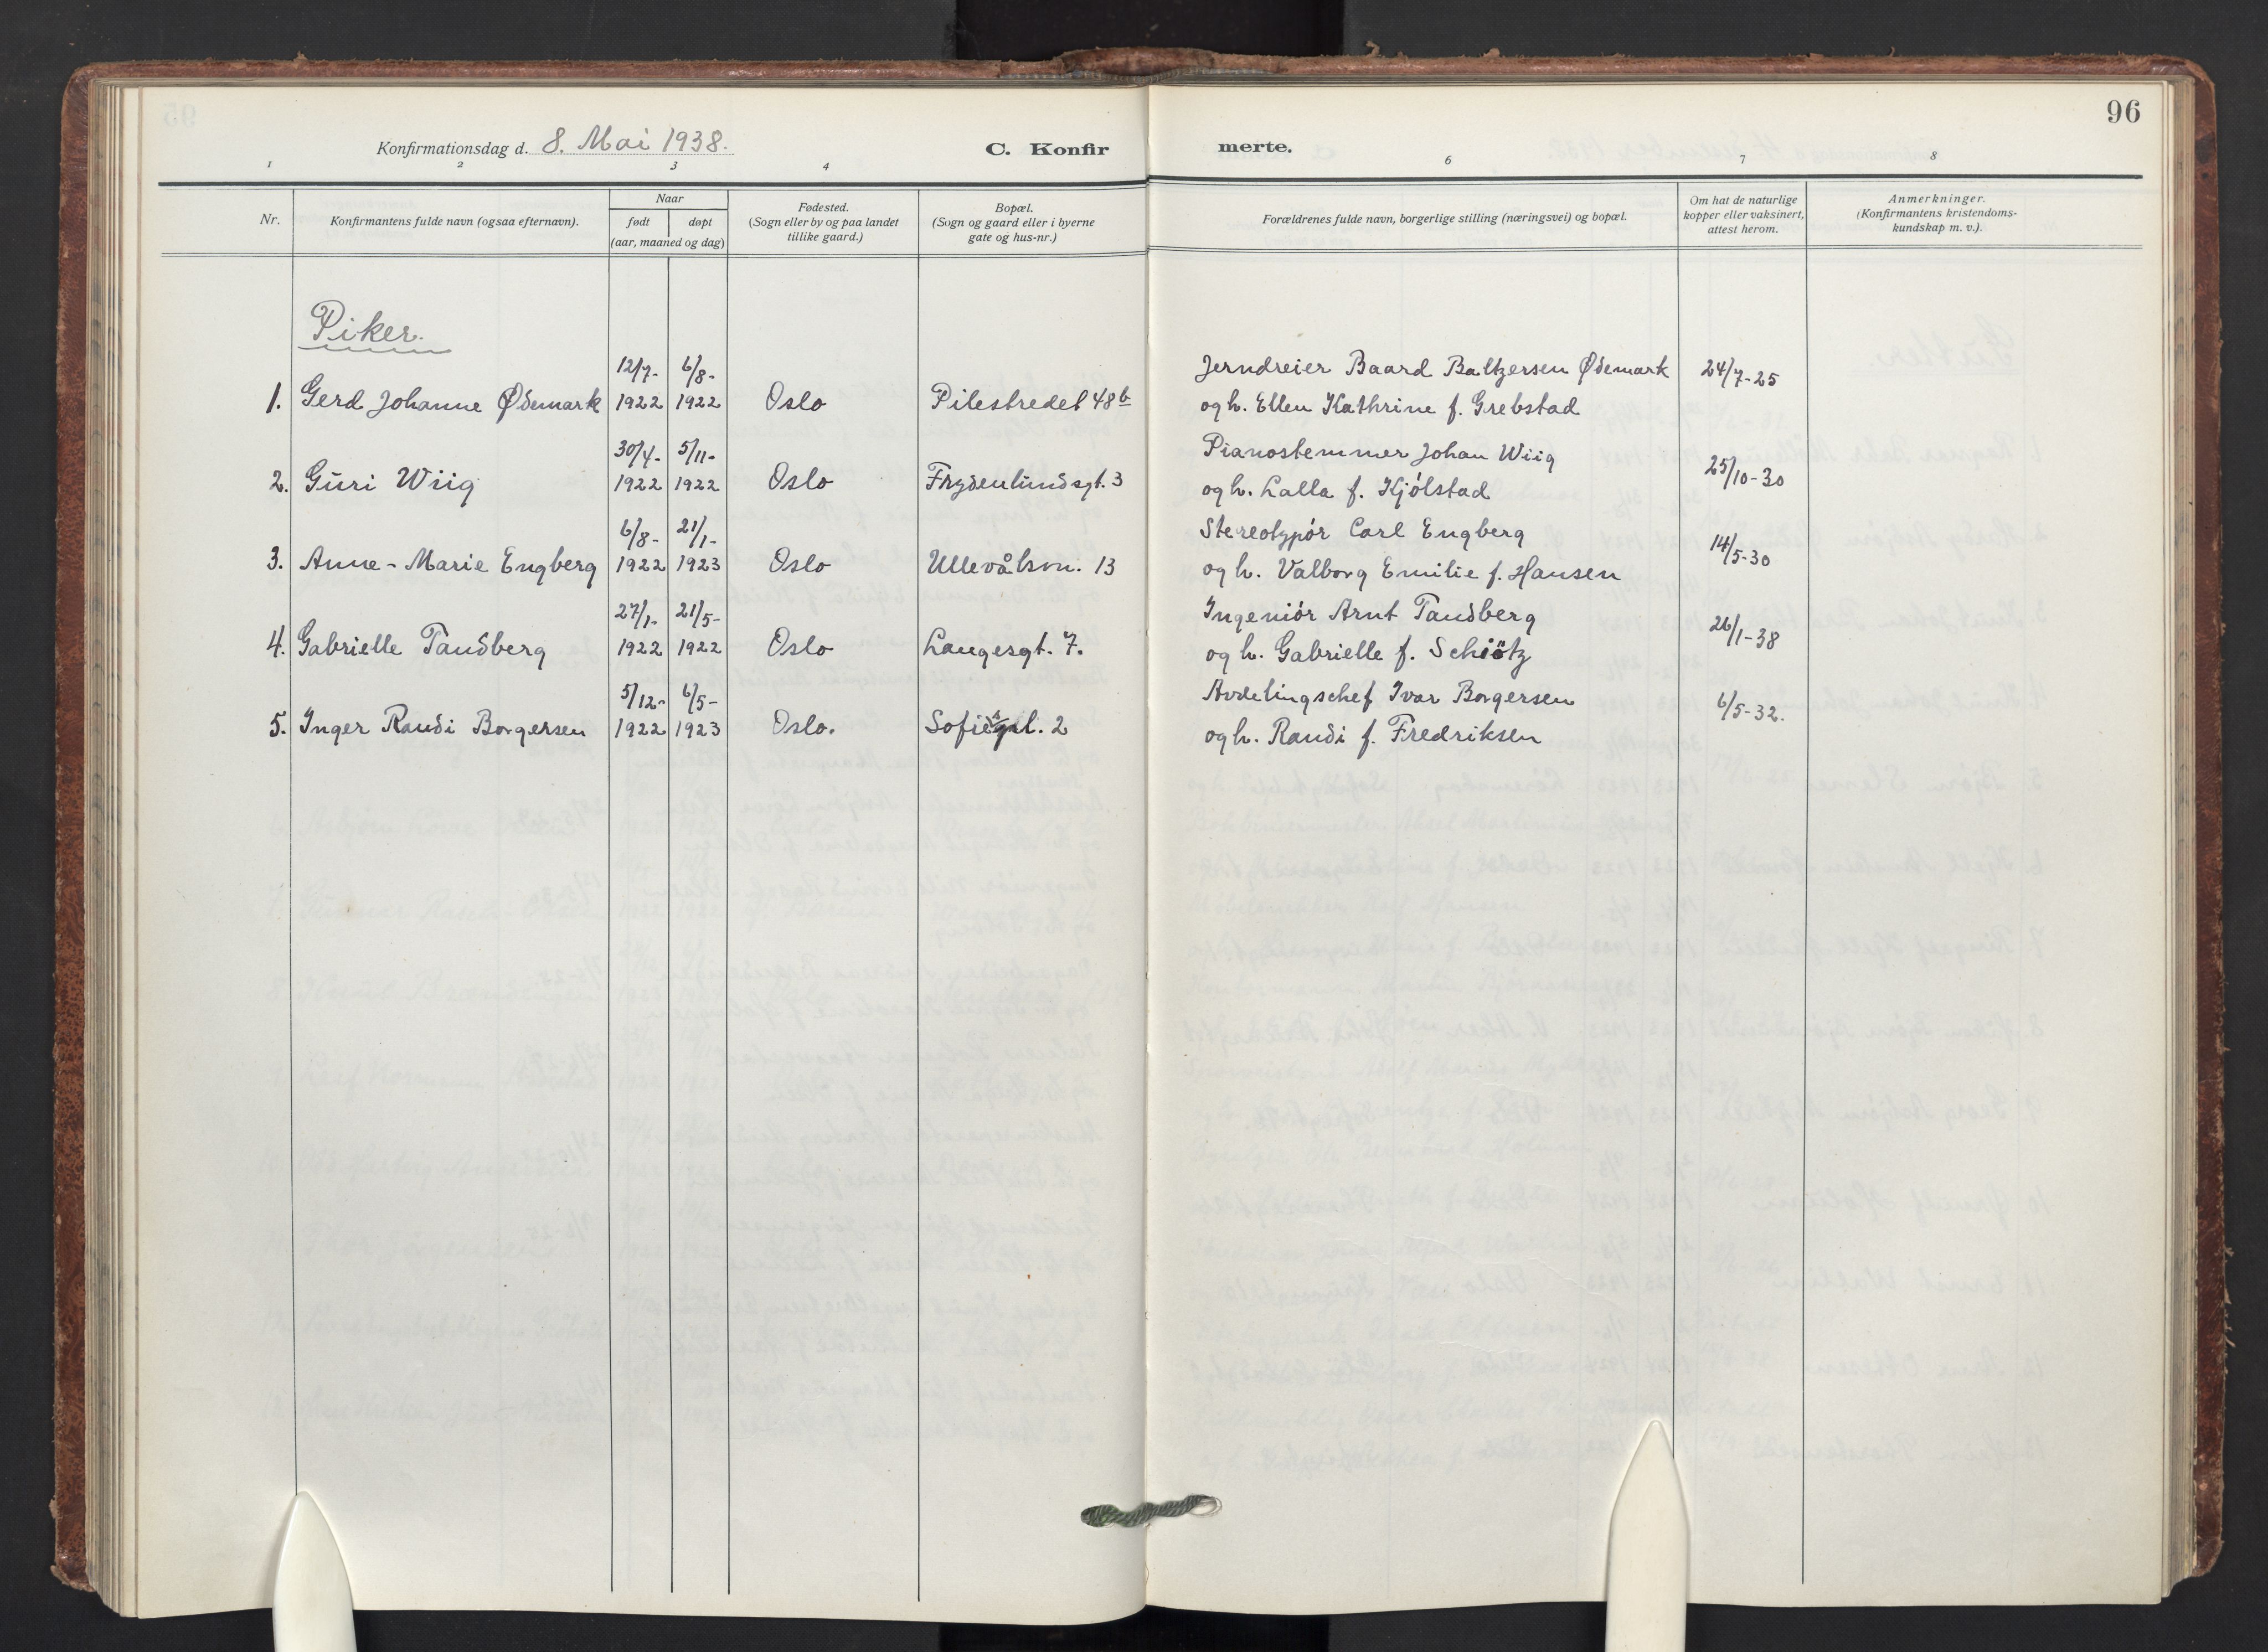 96
Konfirmationsdag d. 8. Mai 1938.
C. Konfirmerte.
1 2 3 4 6 7 8
Nr.
Konfirmantens fulde navn (ogsaa efternavn).
Naar
født døpt
(aar, maaned og dag)
Fødested.
(Sogn eller by og paa landet
tillike gaard.)
Bopæl.
(Sogn og gaard eller i byerne
gate og hus-nr.)
Forældrenes fulde navn, borgerlige stilling (næringsvei) og bopæl.
Om hat de naturlige
kopper eller vaksinert,
attest herom.
Anmerkninger.
(Konfirmantens kristendoms-
kundskap m. v.).
Piker.
12/7- 6/8- Jerndreier Baard Baltzersen Ødemark 24/7-25
1. Gerd Johanne Ødemark 1922 1922 Oslo Pilestredet 48b og h. Ellen Kathrine f. Grebstad
30/4- 5/11- Pianostemmer Johan Wiig 25/10-30
2. Guri Wiig 1922 1922 Oslo Frydenlundsgt. 3 og h. Lalla f. Kjólstad
6/8- 21/1- Stereotypór Carl Engberg 14/5-30
3. Anne-Marie Engberg 1922 1923 Oslo Ullevålsvn. 13 og h. Valborg Emilie f. Hansen
27/1- 21/5- Ingeniór Arnt Tandberg 26/1-38
4. Gabrielle Tandberg 1922 1922 Oslo Langesgt. 7. og h. Gabrielle f. Schiötz
5/12- 6/5- Avdelingschef Ivar Borgersen 6/5-32.
5. Inger Randi Borgersen 1922 1923 Oslo. Sofiespl. 2 og h. Randi f. Fredriksen